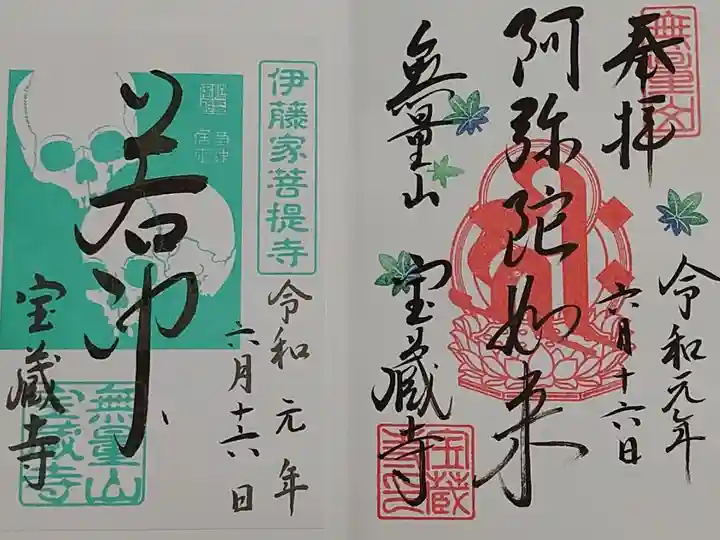 奉拝
無量山
令和元年
六月十六日
阿弥陀如来
無量山
宝蔵寺
宝蔵寺
伊藤家菩提寺
令和元年
六月十六日
若冲
宝蔵寺
無量山
宝蔵寺